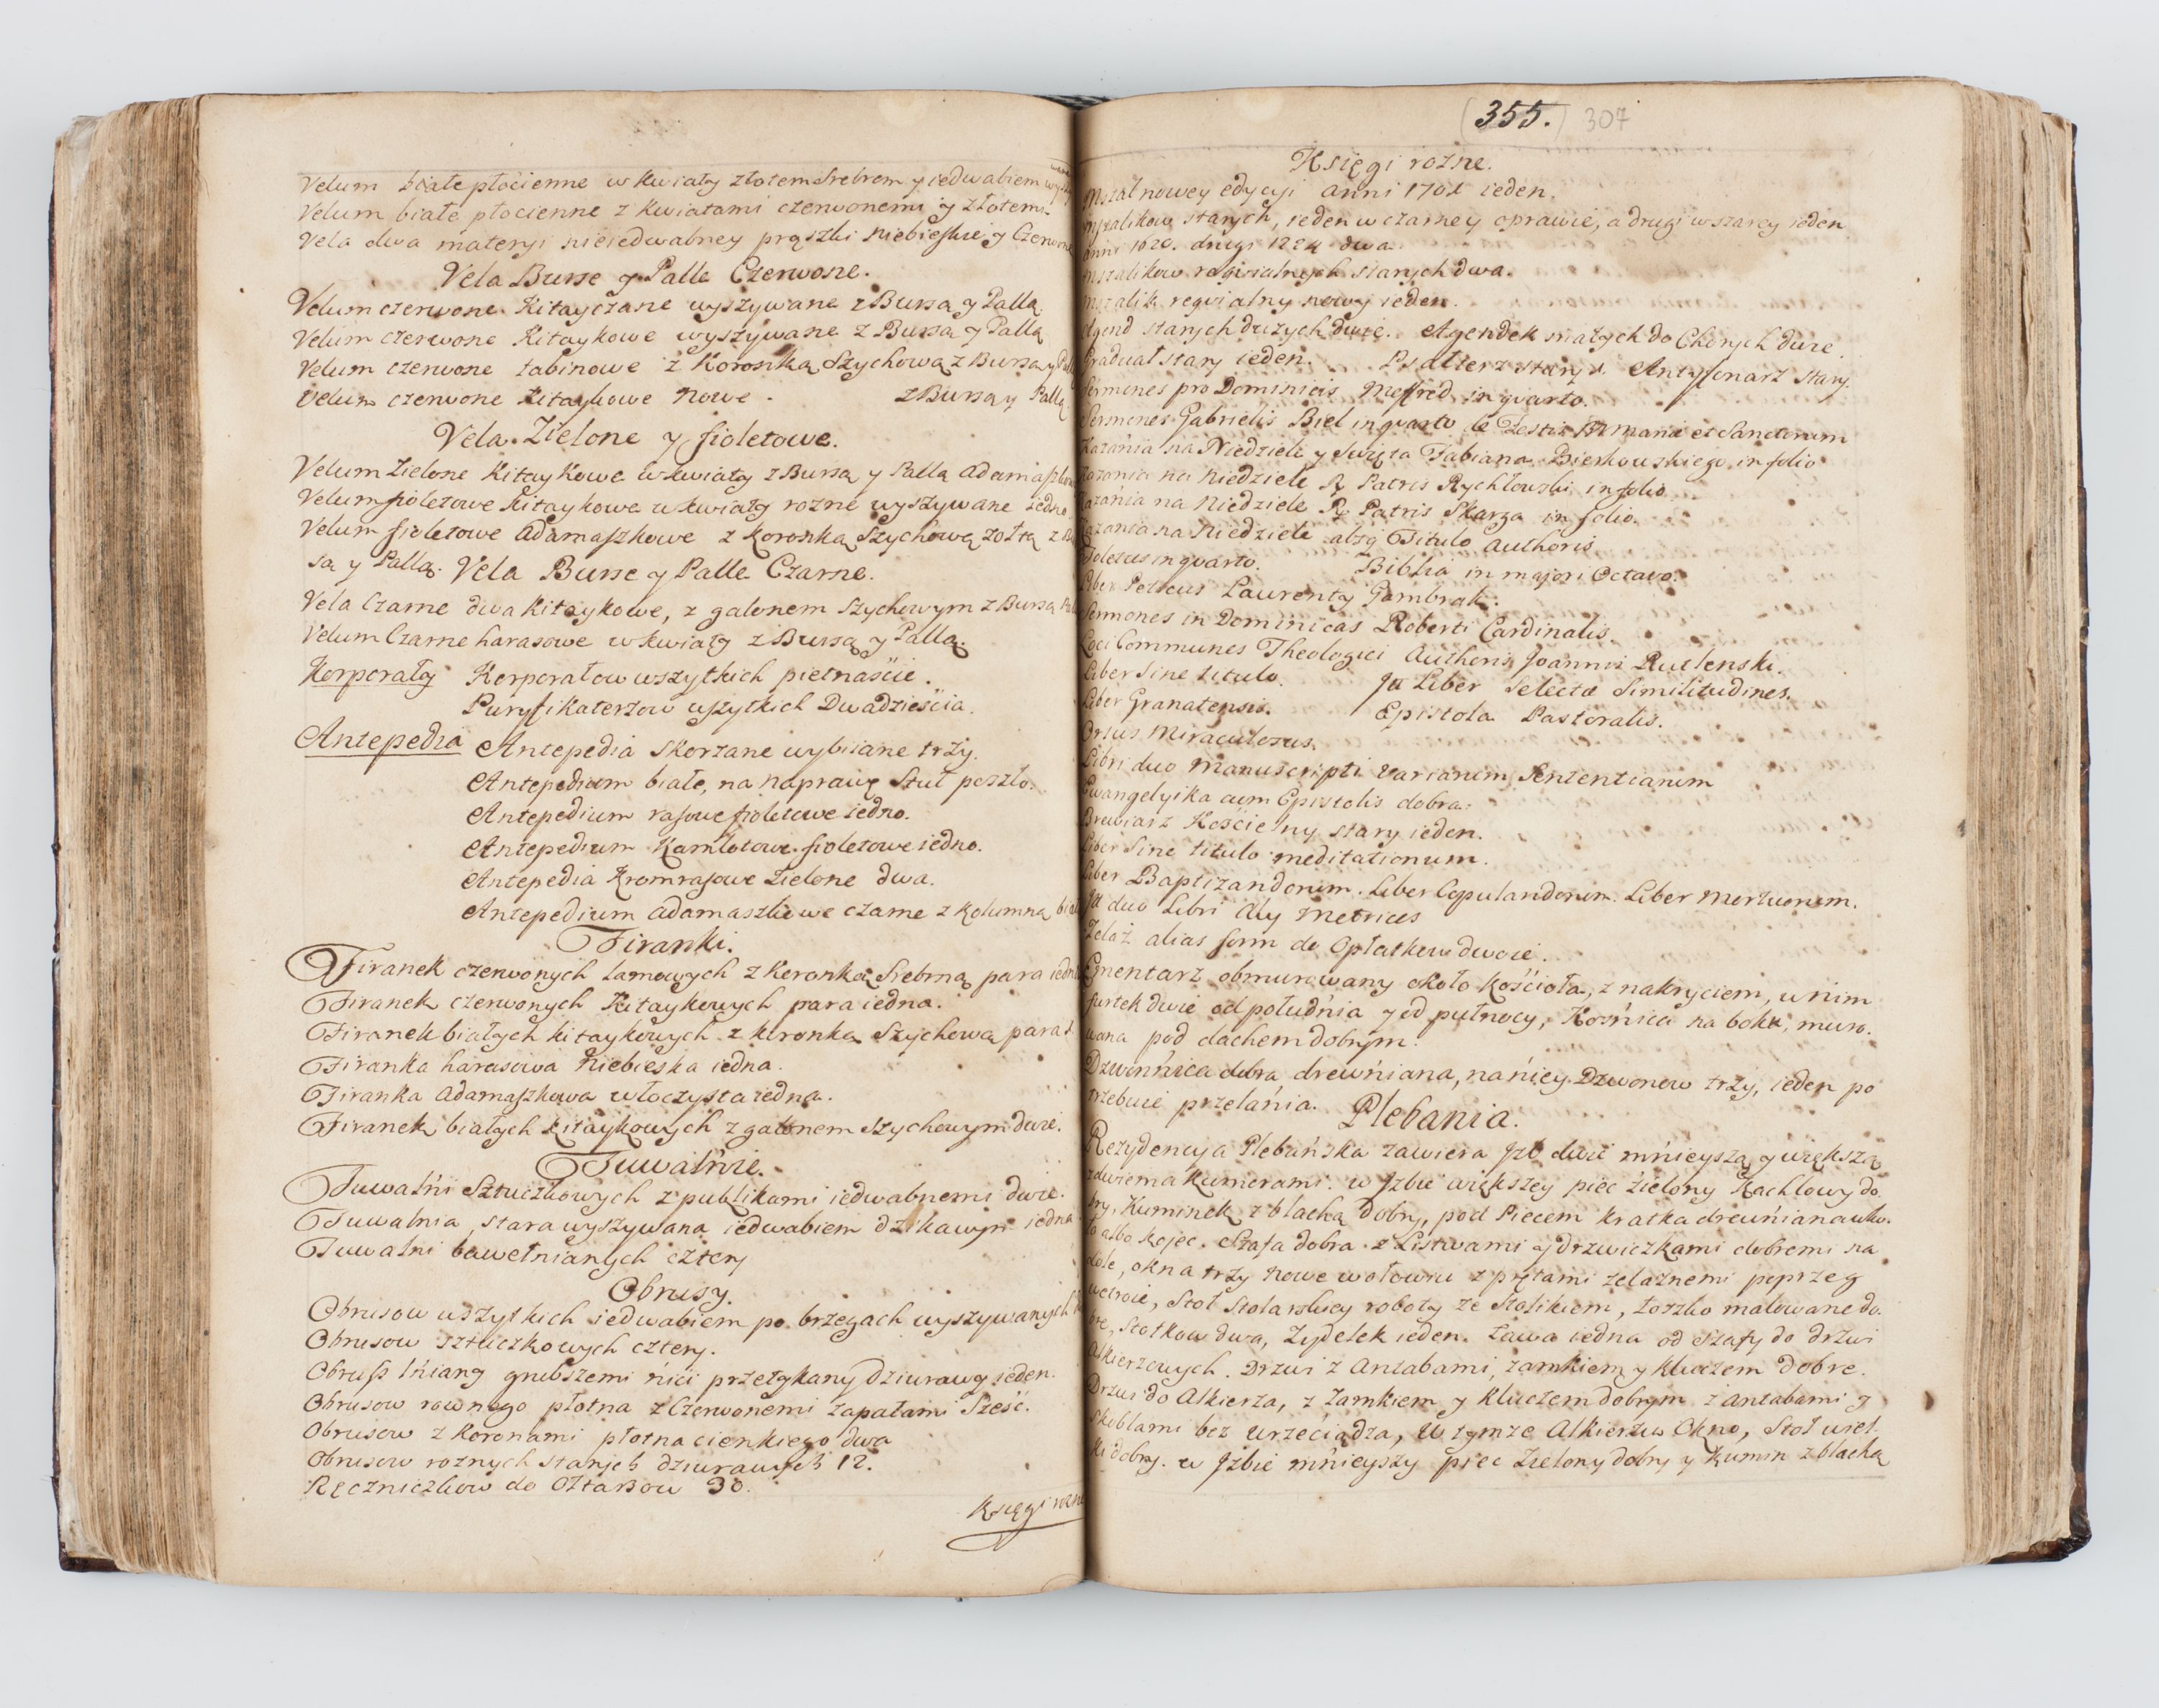 Velum białe płocienne w kwiaty złotem srebrem y iedwabiem
Velum białe płocienne z kwiatami czerwonemi y złotemi
Vela dwa materyi nieiedwabney prąszki niebieskie y
Vela Burse y Palle Czerwone.
Velum czerwone Kitayczane wyszywane z Bursą y Pallą
Velum czerwone Kitaykowe wyszywane z Bursą y Pallą
Velum czerwone tabinowe z Koronką Szychową z Bursą y
Velum czerwone kitaykowe nowe. z Bursą y Pallą
Vela Zielone y fioletowe.
Velum Zielone Kitaykowe w kwiaty z Bursą y Pallą
Velum fioletowe kitaykowe w kwiaty rozne wyszywane iedno
Velum fioletowe adamaszkowe z koronką Szychową zołtą z
są y Pallą. Vela Burse y Palle Czarne.
Vela Czarne dwa kitaykowe, z galonem szychowym z Bursą
Velum Czarne harasowe w kwiaty z Bursą y Pallą.
Korporały Korporałow wszytkich pietnaście.
Puryfikaterzow wszytkich Dwadzieścia.
Antepedia Antepedia skorzane wybiiane trzy.
Antepedium białe, na naprawę Stuł poszło.
Antepedium rasowe fioletowe iedno.
Antepedium Kamlotowe fioletowe iedno.
Antepedia Kromrasowe zielone dwa.
Antepedium adamaszkowe czarne z kolumną
Firanki.
Firanek czerwonych lamowych z Koronką Srebrną para
Firanek czerwonych Kitaykowych para iedna.
Firanek białych kitaykowych z koronką Szychową para
Firanka harasowa Niebieska iedna.
Firanka adamaszkowa włoczysta iedna.
Firanek białych kitaykowych z galonem szychowym dwie.
Tuwalnie.
Tuwalni Sztuczkowych z publikami iedwabnemi dwie.
Tuwalnia stara wyszywana iedwabiem dzikawym iedna
Tuwalni bawełnianych cztery
Obrusy.
Obrusow wszytkich iedwabiem po brzegach wyszywanych
Obrusow sztuczkowych cztery.
Obruss lniany grubszemi nici przetykany dziurawy ieden.
Obrusow rownego płotna z Czerwonemi zapałami Sześć.
Obrusow z koronami płotna cienkiego dwa
Obrusow roznych starych dziurawych 12.
Ręczniczkow do Ołtarzow 30.
Księgi rozne
355. 307
Księgi rozne.
Mszał nowey edycyi anni 1701 ieden.
Mszalikow starych, ieden w czarney oprawie, a drugi w szarey ieden
anni 1620. drugi dwa
Mszalikow reqwialnych starych dwa.
Mszalik reqwialny nowy ieden.
Agend starych duzych dwie. Agendek małych do Chorych dwie.
Graduał stary ieden. Psałterz stary 1. Antyfonarz stary.
Sermones pro Dominicis Meffred in qvarto.
Sermones Gabrielis Biel in qvarto de Festis et Sanctorum
Kazania na Niedziele y Swięta Fabiana Bierkowskiego in folio
Kazania na Niedziele R. Patris Rychłowski in folio
Kazania na Niedziele R. Patris Skarga in folio.
Kazania na Niedziele absq Titulo Authoris
Toletus in qvarto. Biblia in majori Octavo.
Liber Laurenty Gembrak.
Sermones in Dominicas Roberti Cardinalis.
Loci Communes Theologici Authoris Joannis Rutlenski.
Liber Sine titulo. Liber Selecta Similitudines.
Liber Granatensis. Epistola Pastoralis.
Ortus Miraculosus.
Libri duo Manuscripti variarum Sententiarum
Ewangelyika cum Epistolis dobra.
Brewiarz Kościelny stary ieden.
Liber Sine titulo meditationum.
Liber Baptizandorum. Liber Copulandorum. Liber Mortuorum.
duo Libri Aly Metrices
Zelaz alias form do Opłatkow dwoie.
Cmentarz obmurowany około kościoła, z nakryciem, w nim
furtek dwie od południa y od pułnocy, Kośnica na boku, muro-
wana pod dachem dobrym.
Dzwonnica dobra drewniana, na niey Dzwonow trzy, ieden po
trzebuie przelania. Plebania.
Rezydencya Plebańska zawiera Jzb dwie mnieyszą y większą
z dwiema kumorami. w Jzbie większey piec zielony kachlowy do-
bry, Kuminek z blachą dobry, pod Piecem kratka drewniana
albo kojec. Szafa dobra z Listwami y drzwiczkami dobremi na
dole, okna trzy nowe w ołowiu z prętami zelaznemi poprzeg
Stoł stolarskiey roboty ze stolikiem, łoszko malowane do-
bre, Stołkow dwa, Zydelek ieden. Ława iedna od szafy do drzwi
alkierzowych. Drzwi z antabami, zamkiem y kluczem dobre.
Drzwi do Alkierza, z zamkiem y kluczem dobrym z antabami y
skoblami bez wrzeciądza, w tymze Alkierzu Okno, Stoł wiel-
ki dobry. w Jzbie mnieyszy piec Zielony dobry y kumin z blachą